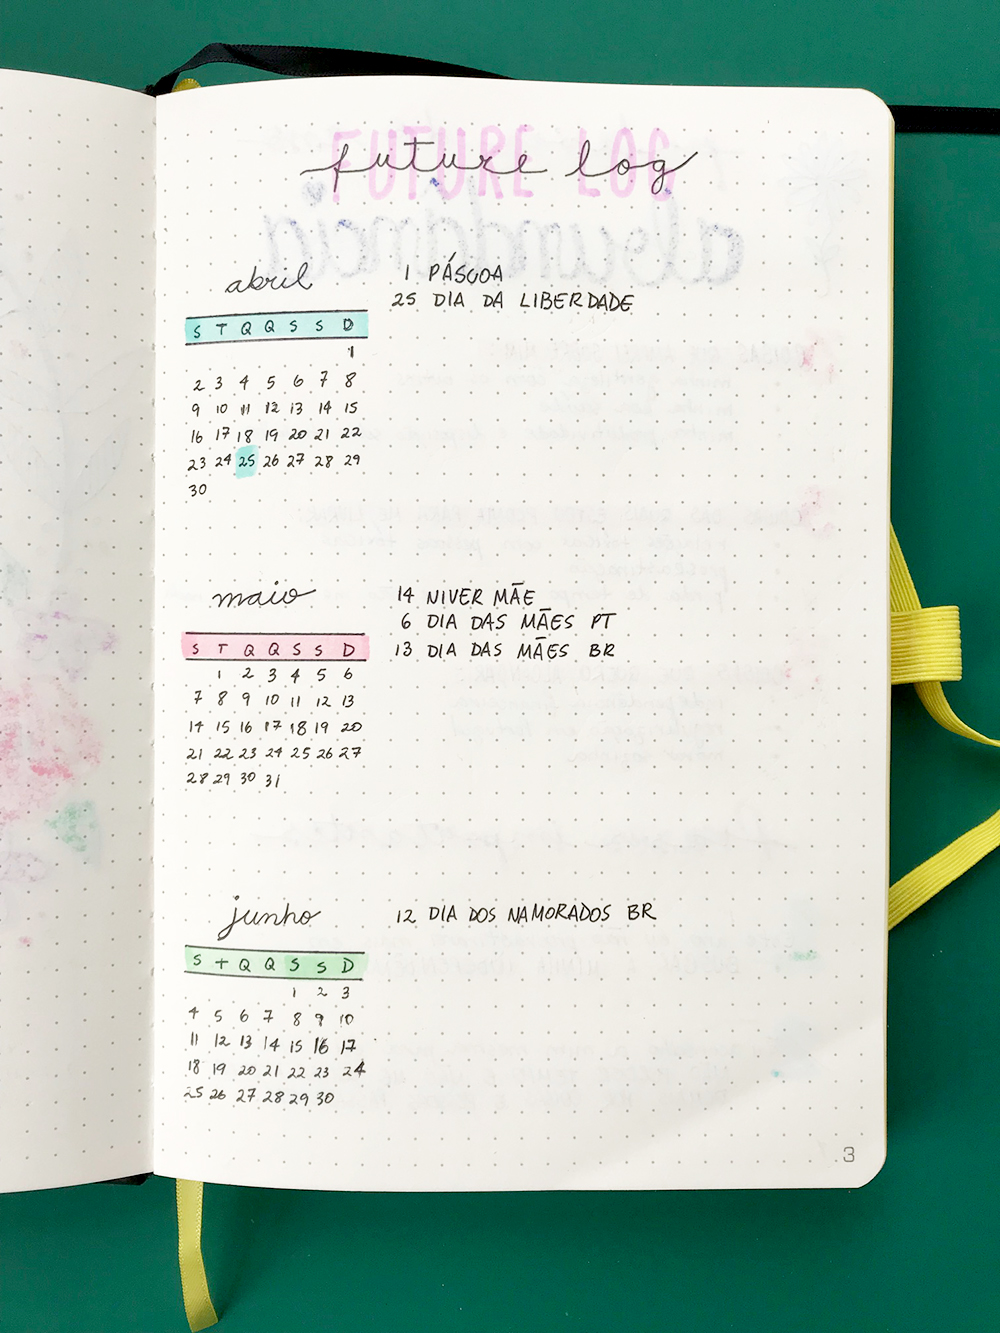 FUTURE LOG
future log
abundância
abril
1 PÁSCOA
25 DIA DA LIBERDADE
S T Q Q S S D
1
2 3 4 5 6 7 8
9 10 11 12 13 14 15
16 17 18 19 20 21 22
23 24 25 26 27 28 29
30
maio
14 NIVER MÃE
6 DIA DAS MÃES PT
13 DIA DAS MÃES BR
S T Q Q S S D
1 2 3 4 5 6
7 8 9 10 11 12 13
14 15 16 17 18 19 20
21 22 23 24 25 26 27
28 29 30 31
junho
12 DIA DOS NAMORADOS BR
S T Q Q S S D
1 2 3
4 5 6 7 8 9 10
11 12 13 14 15 16 17
18 19 20 21 22 23 24
25 26 27 28 29 30
3